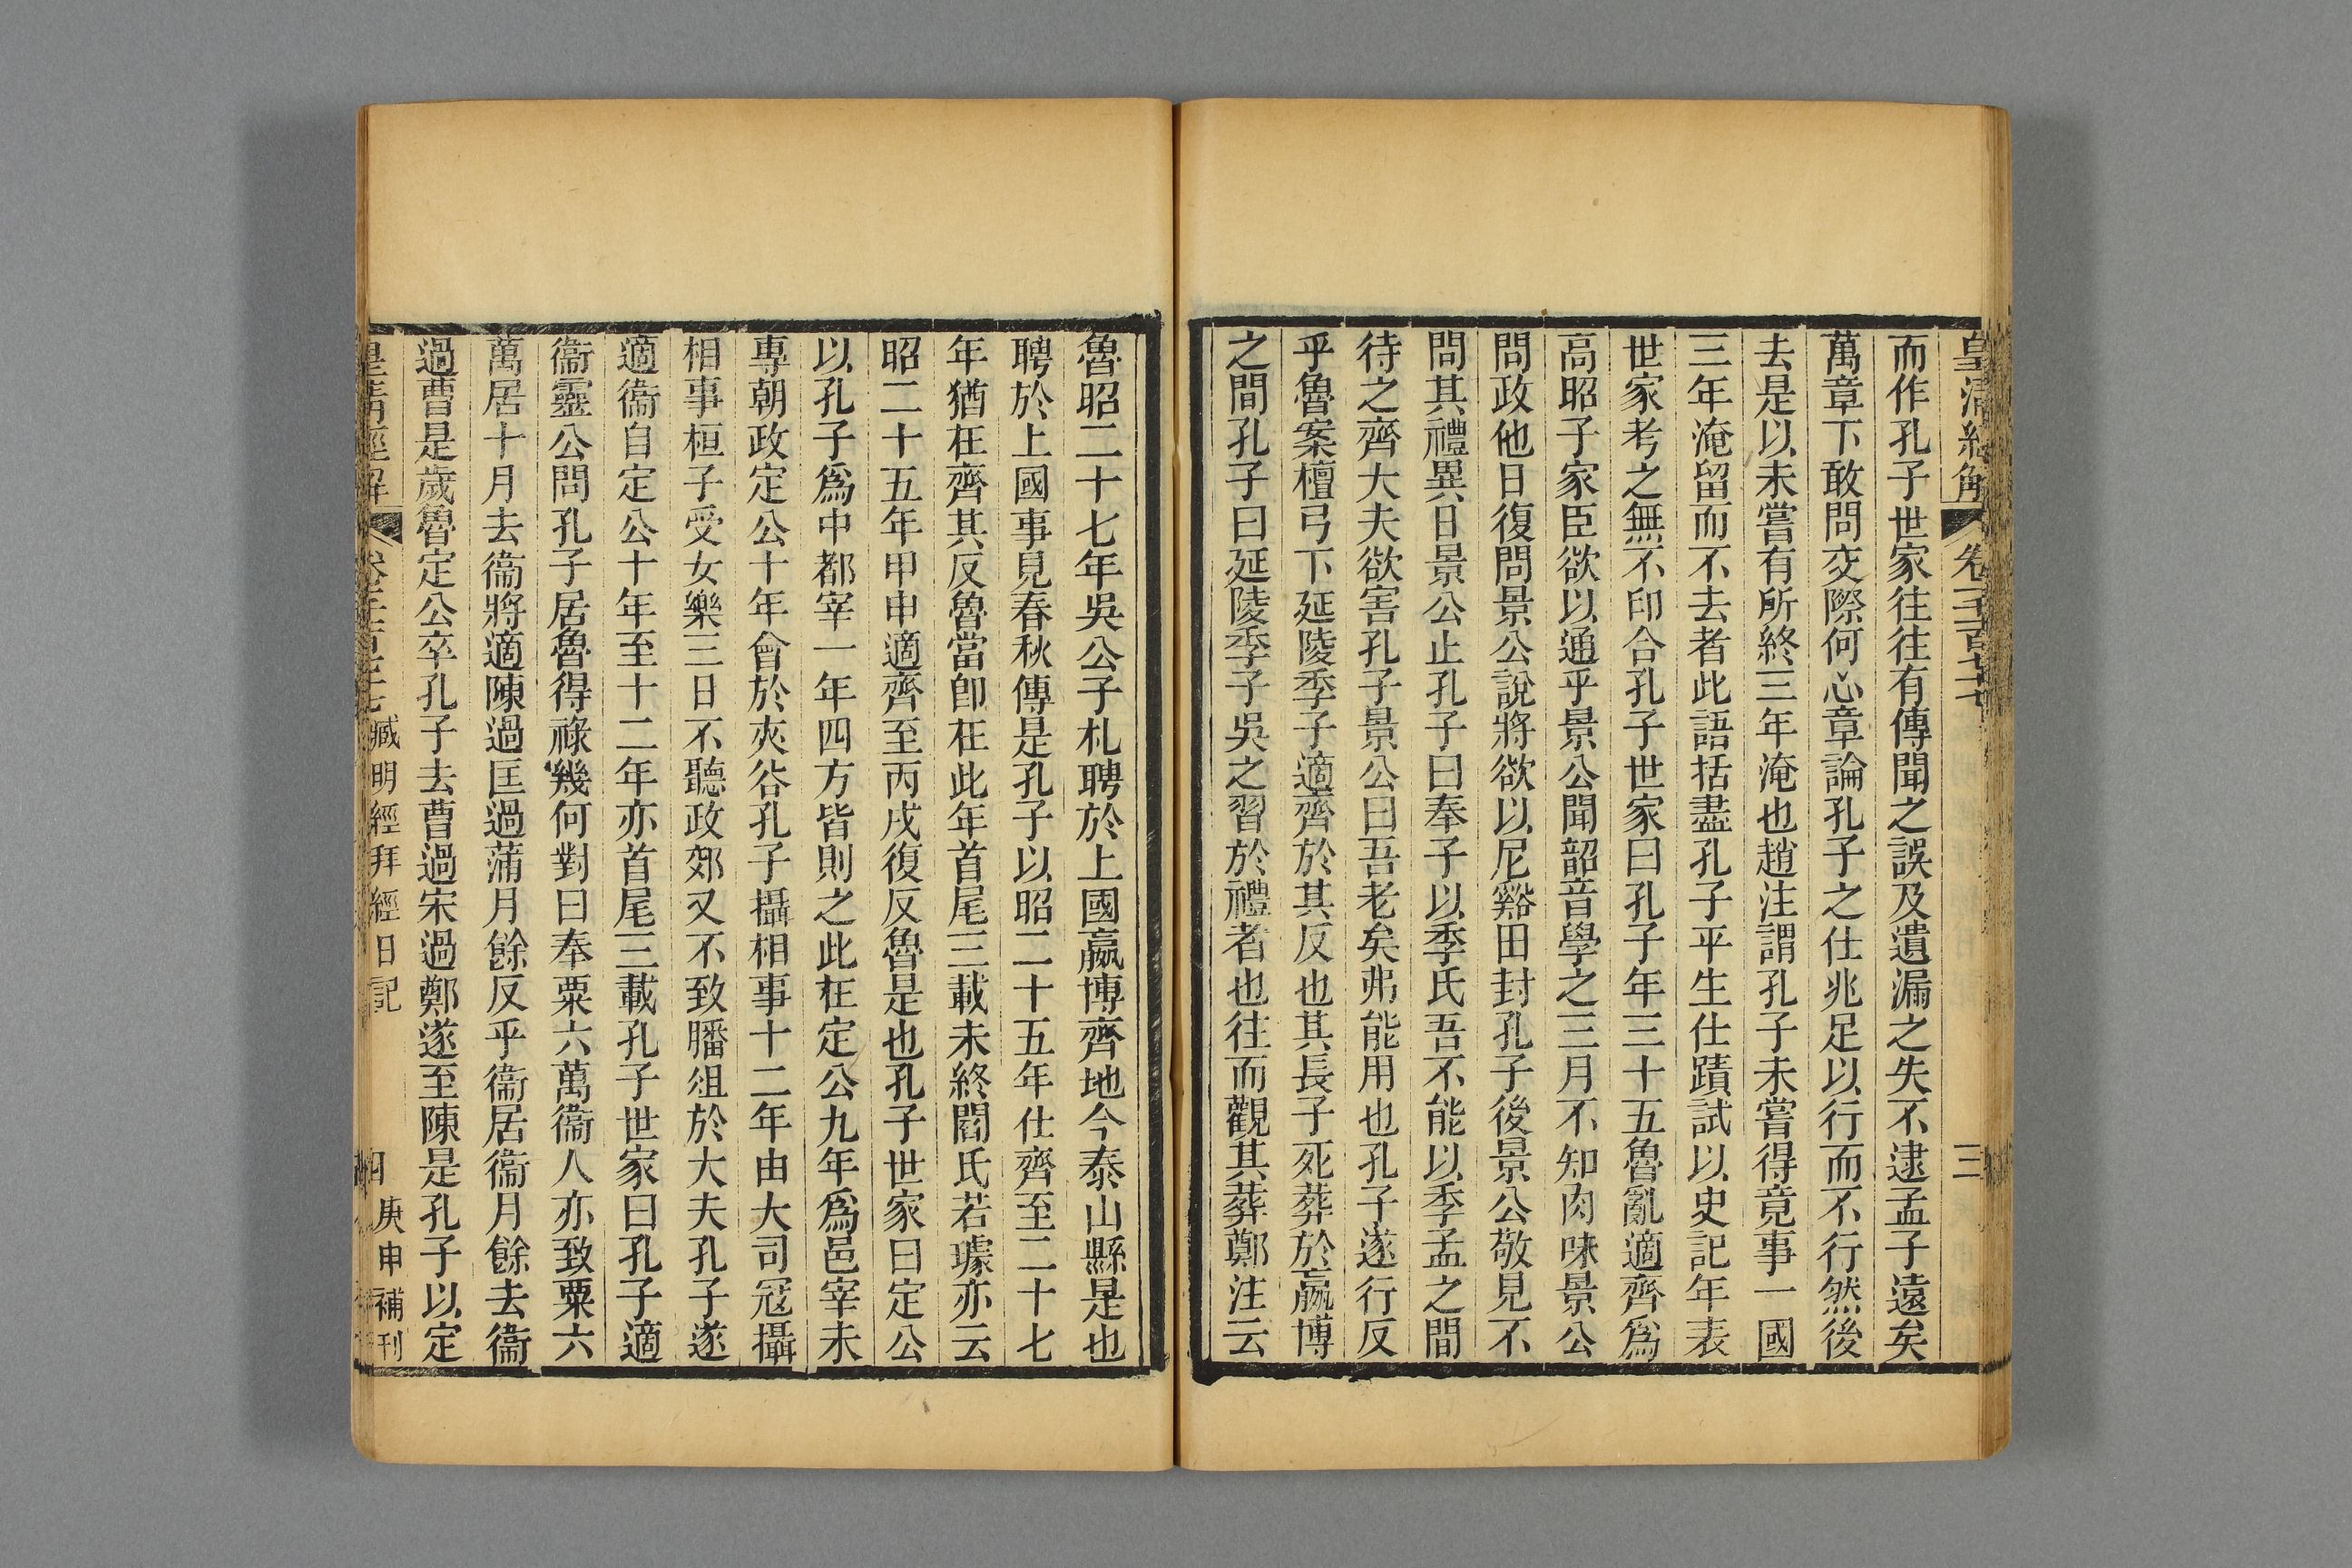 皇清經解 卷千一百七十 三
而作孔子世家往往有傳聞之誤及遺漏之失不逮孟子遠矣
萬章下敢問交際何心章論孔子之仕兆足以行而不行然後
去是以未嘗有所終三年淹也趙注謂孔子未嘗得竟事一國
三年淹留而不去者此語括盡孔子平生仕蹟試以史記年表
世家考之無不印合孔子世家曰孔子年三十五魯亂適齊爲
高昭子家臣欲以通乎景公聞韶音學之三月不知肉味景公
問政他日復問景公說將欲以尼谿田封孔子後景公敬見不
問其禮異日景公止孔子曰奉子以季氏吾不能以季孟之間
待之齊大夫欲害孔子景公曰吾老矣弗能用也孔子遂行反
乎魯案檀弓下延陵季子適齊於其反也其長子死葬於嬴博
之間孔子曰延陵季子吳之習於禮者也往而觀其葬鄭注云
魯昭二十七年吳公子札聘於上國嬴博齊地今泰山縣是也
聘於上國事見春秋傳是孔子以昭二十五年仕齊至二十七
年猶在齊其反魯當卽在此年首尾三載未終閻氏若璩亦云
昭二十五年甲申適齊至丙戌復反魯是也孔子世家曰定公
以孔子爲中都宰一年四方皆則之此在定公九年爲邑宰未
專朝政定公十年會於夾谷孔子攝相事十二年由大司寇攝
相事桓子受女樂三日不聽政郊又不致膰俎於大夫孔子遂
適衞自定公十年至十二年亦首尾三載孔子世家曰孔子適
衞靈公問孔子居魯得祿幾何對曰奉粟六萬衞人亦致粟六
萬居十月去衞將適陳過匡過蒲月餘反乎衞居衞月餘去衞
過曹是歲魯定公卒孔子去曹過宋過鄭遂至陳是孔子以定
皇清經解 臧明經拜經日記 四 庚申補刊